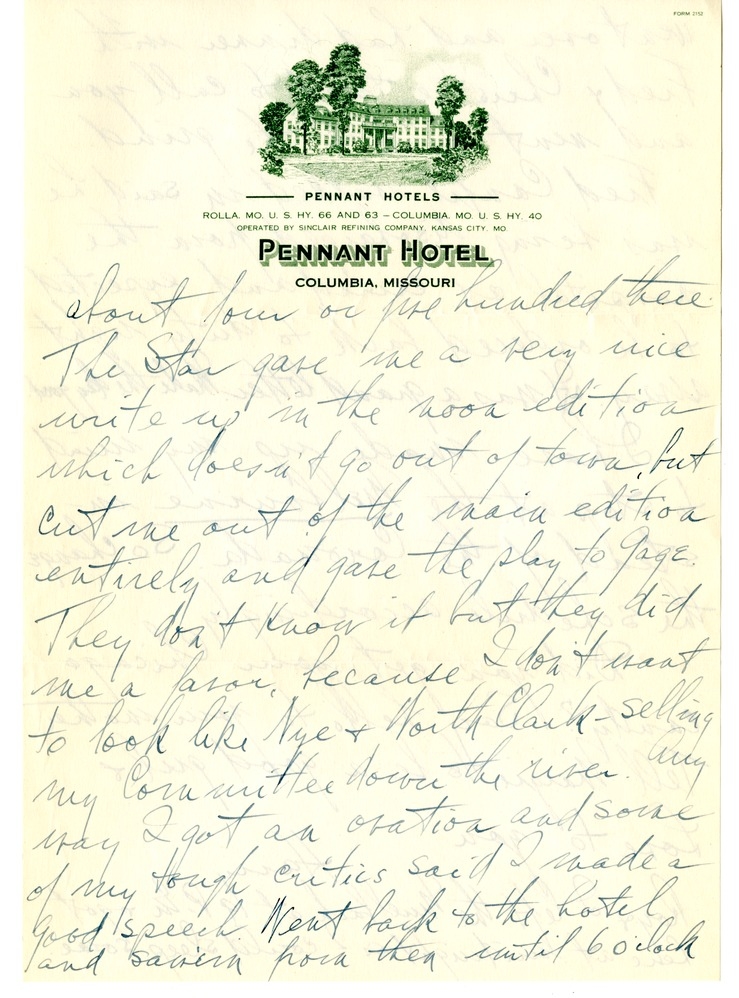 FORM 2152
PENNANT HOTELS
ROLLA, MO. U. S. HY. 66 AND 63 – COLUMBIA, MO. U. S. HY. 40
OPERATED BY SINCLAIR REFINING COMPANY, KANSAS CITY, MO.
PENNANT HOTEL
COLUMBIA, MISSOURI
about four or five hundred there.
The Star gave me a very nice
write up in the noon edition
which doesn't go out of town, but
cut me out of the main edition
entirely and gave the play to Gage.
They don't know it but they did
me a favor, because I don't want
to look like Nye & Worth Clark - selling
my Committee down the river. Any
way I got an ovation and some
of my tough critics said I made a
good speech Went back to the hotel
and from then until 6 o'clock